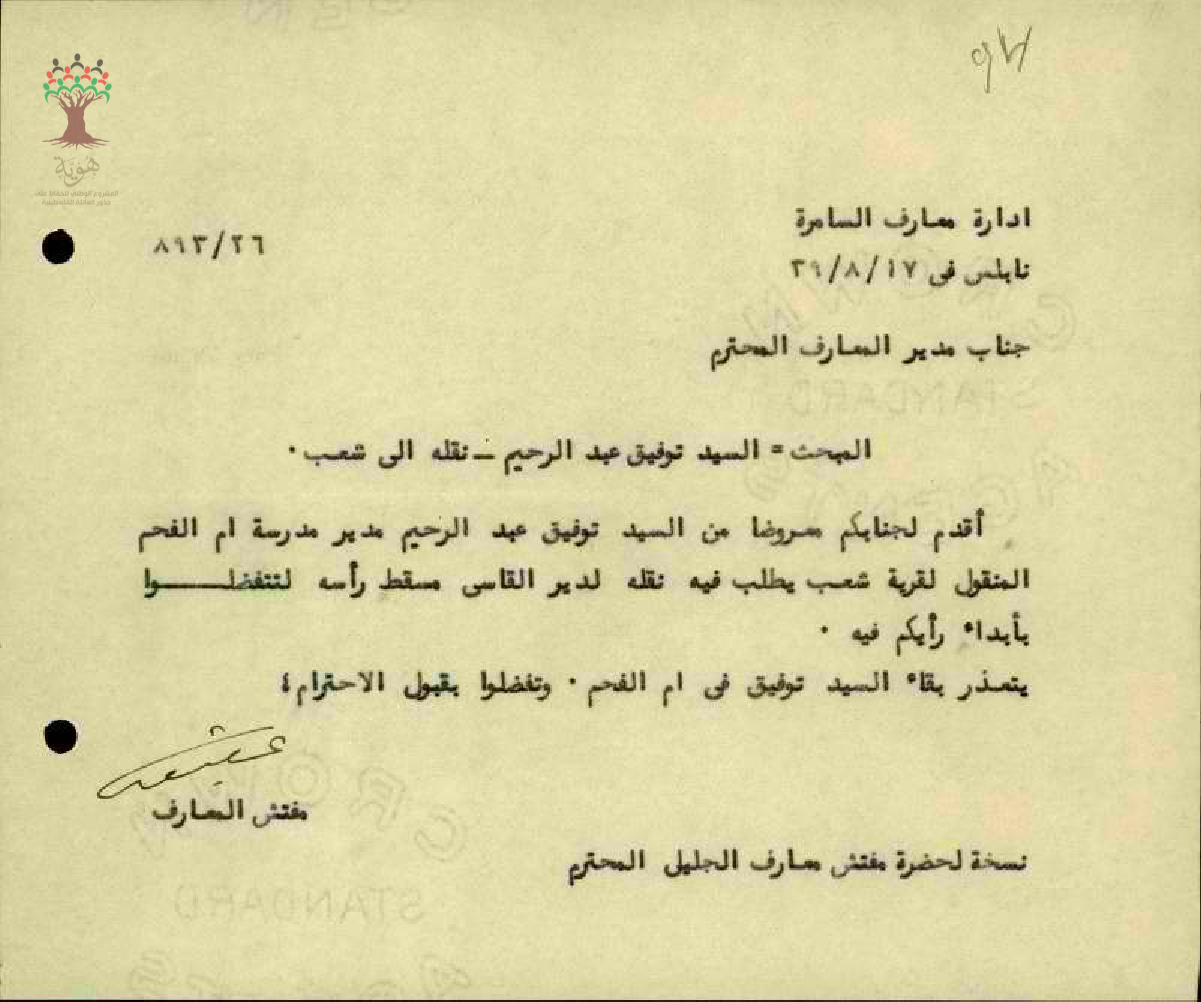 هوية
المشروع الوطني للحفاظ على
جذور العائلة الفلسطينية
ادارة معارف السامرة
٨٩٣/٢٦
نابلس فى ٣٩/٨/١٧
جناب مدير المعارف المحترم
المبحث = السيد توفيق عبد الرحيم – نقله الى شعب .
أقدم لجنابكم معروضا من السيد توفيق عبد الرحيم مدير مدرسة ام الفحم
المنقول لقرية شعب يطلب فيه نقله لدير القاسى مسقط رأسه لتتفضلـــــوا
بأبداء رأيكم فيه .
يتعذر بقاء السيد توفيق فى ام الفحم . وتفضلوا بقبول الاحترام ؛
مفتش المعارف
نسخة لحضرة مفتش معارف الجليل المحترم
CROWN
STANDARD
CROWN
STANDARD